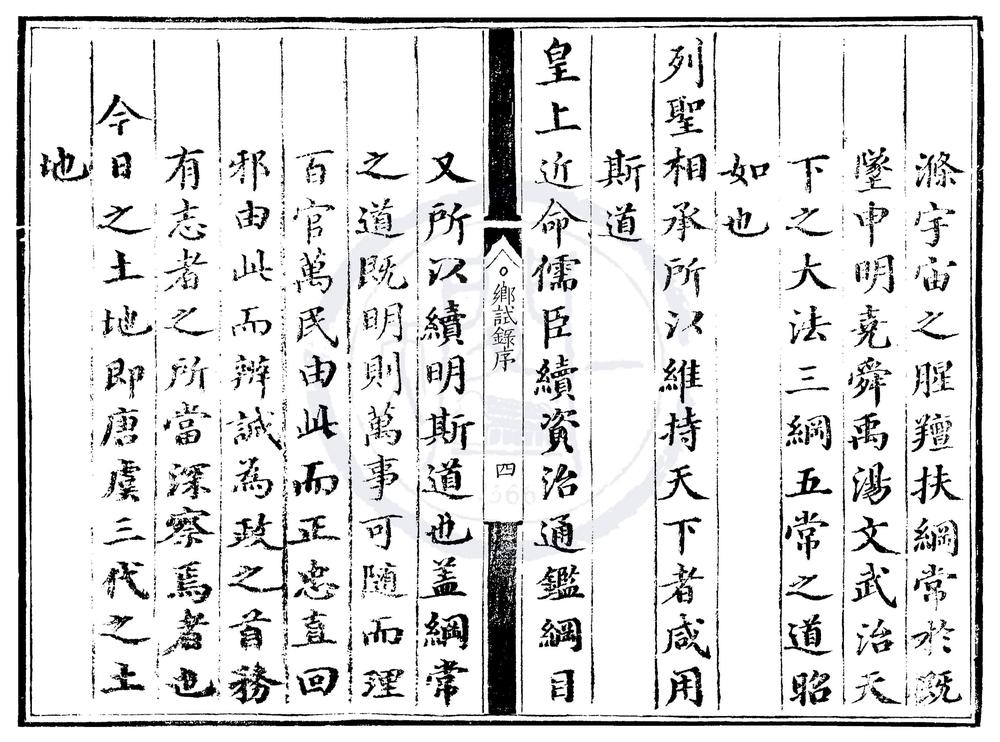 滌宇宙之腥羶扶綱常於既
墜申明堯舜禹湯文武治天
下之大法三綱五常之道昭
如也
列聖相承所以維持天下者咸用
斯道
皇上近命儒臣續資治通鑑綱目
鄉試錄序
四
又所以續明斯道也盖綱常
之道既明則萬事可隨而理
百官萬民由此而正忠直回
邪由此而辨誠為政之首務
有志者之所當深察焉者也
今日之土地即唐虞三代之土
地